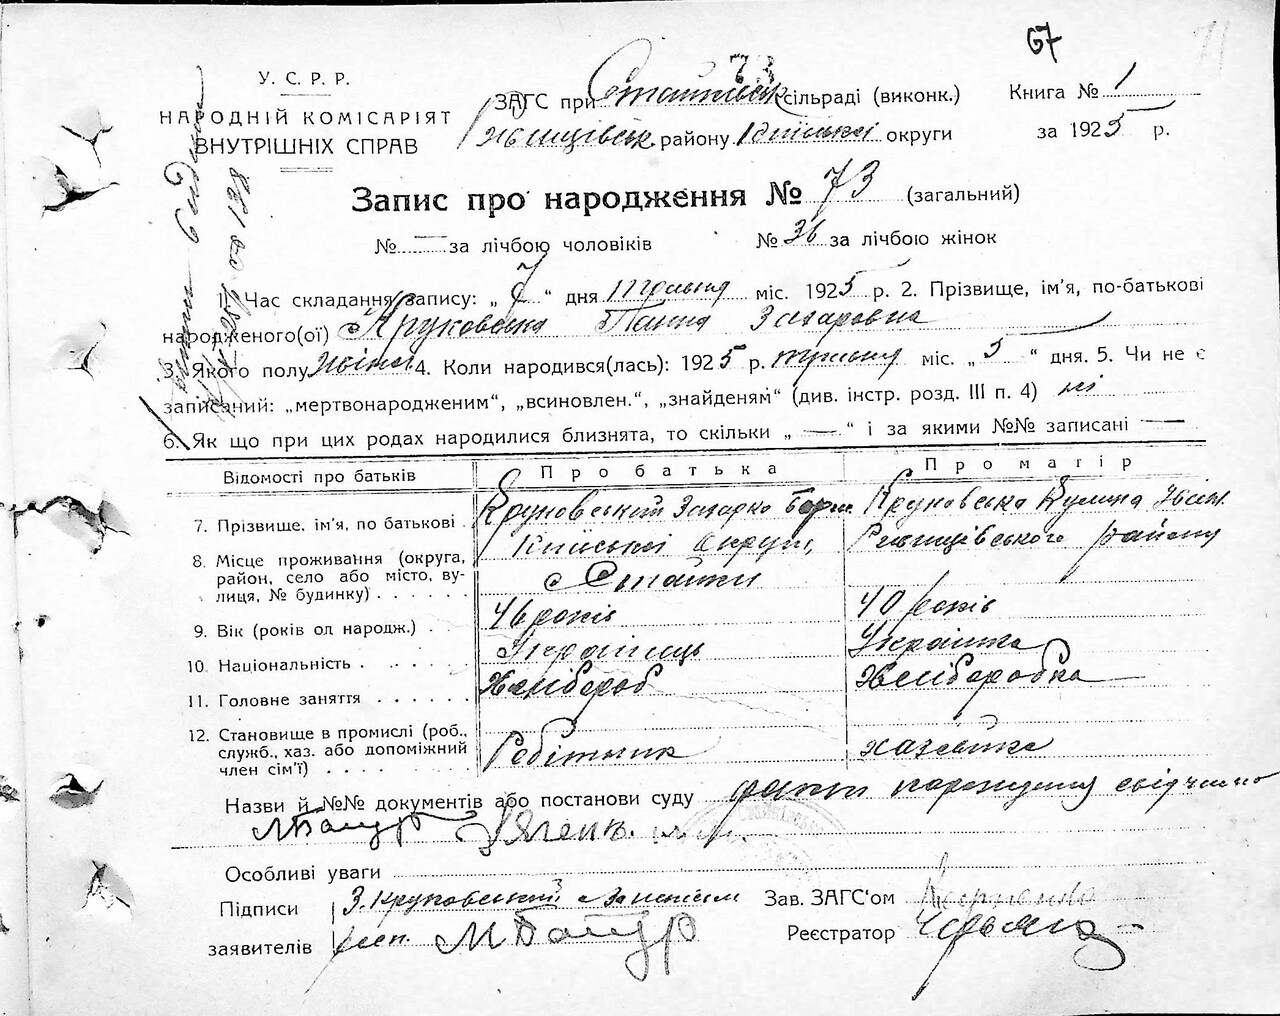 67
73
У. С. Р. Р.
НАРОДНІЙ КОМІСАРІЯТ
ВНУТРІШНІХ СПРАВ
ЗАГС при Стайківськ сільраді (виконк.)
Ржищівськ. району Київської округи
Книга № 1
за 1925 р.
Запис про народження № 73 (загальний)
№ — за лічбою чоловіків № 36 за лічбою жінок
1. Час складання запису: „ 7 “ дня травня міс. 1925 р. 2. Прізвище, ім'я, по-батькові
народженого(ої) Круковська Ганна Захаровна
3. Якого полу жіноч 4. Коли народився(лась): 1925 р. травня міс. „ 5 “ дня. 5. Чи не є
записаний: „мертвонародженим“, „всиновлен.“, „знайденям“ (див. інстр. розд. III п. 4) ні
6. Як що при цих родах народилися близнята, то скільки „ — “ і за якими №№ записані —
Відомості про батьків Про батька Про матір
7. Прізвище, ім'я, по батькові Круковський Захарко Круковська Кулина
8. Місце проживання (округа, район, село або місто, вулиця, № будинку) Київської округи, Ржищівського району
с. Стайки
9. Вік (років од народж.) 46 років 40 років
10. Національність Українець Українка
11. Головне заняття Хлібороб Хліборобка
12. Становище в промислі (роб., служб., хаз. або допоміжний член сім'ї) Робітник хазяйка
Назви й №№ документів або постанови суду факт народження свідчимо
Особливі уваги
Підписи З. Круковський
заявителів
Зав. ЗАГС'ом
Реєстратор